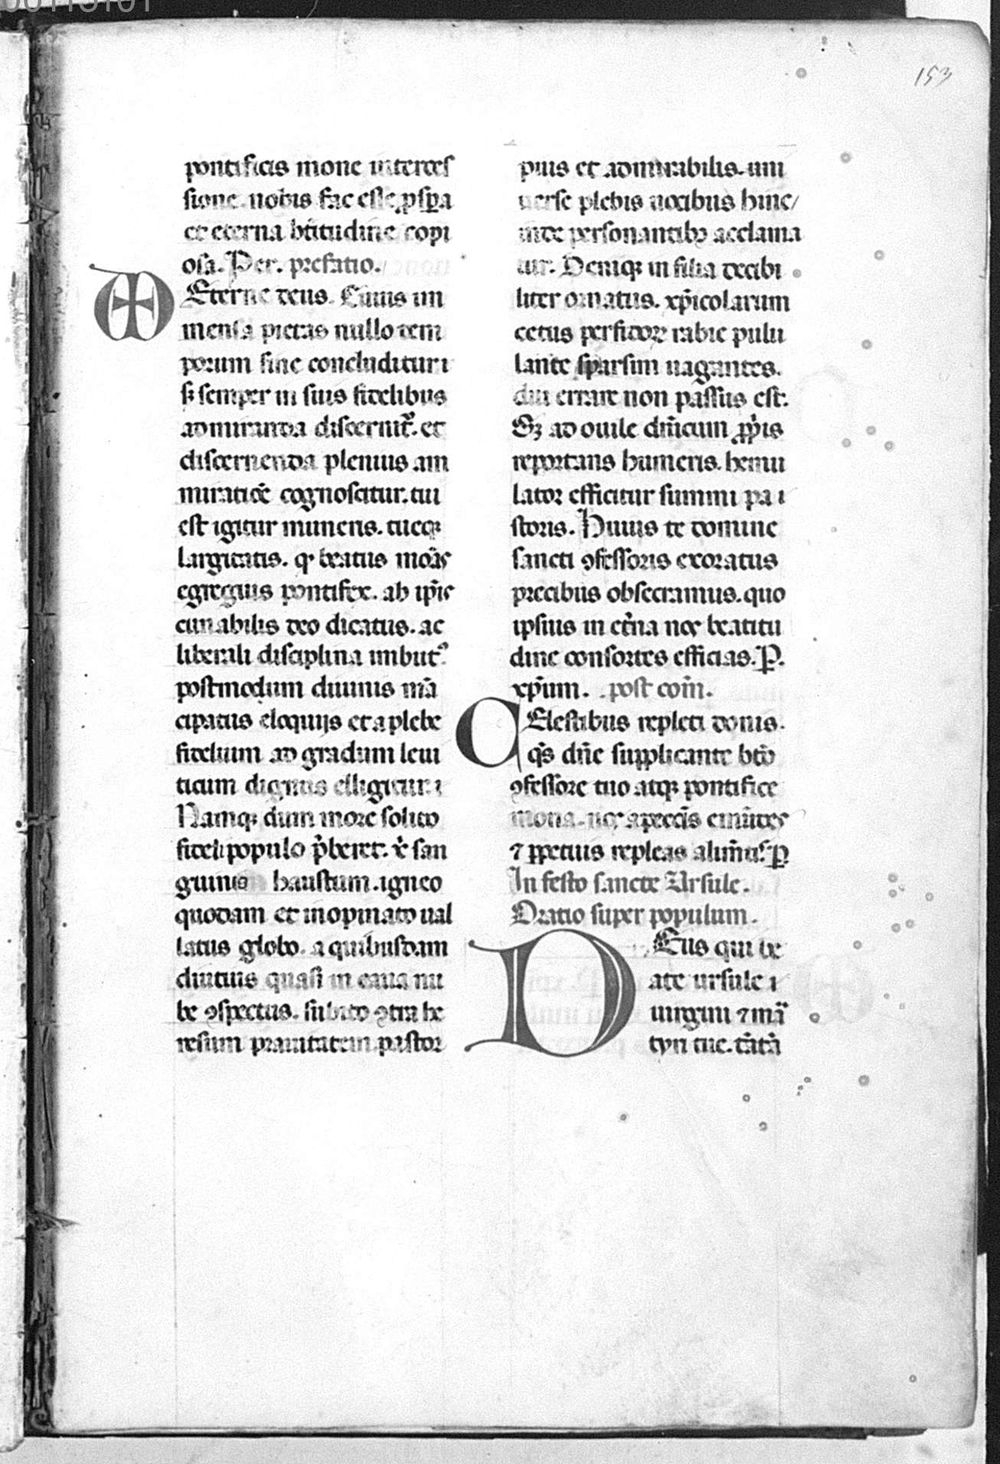 153
pontificis mone interces
sione. nobis fac esse ꝓsꝑa
et eterna btitudine copi
osa. Per. prefatio.
Eterne deus. Cuius im
mensa pietas nullo tem
porum fine concluditur
sꝫ semper in suis fidelibus
admiranda discernit. et
discernenda plenius am
miratiōe cognoscitur. tui
est igitur muneris. tueqꝫ
largitatis. ꝙ beatus monās
egregius pontifex. ab ipīs
cunabilis deo dicatus. ac
liberali disciplina imbutꝰ
postmodum diuinis mā
cipatus eloquijs et a plebe
fidelium ad gradum leui
ticum dignus elligitur
Namqꝫ dum more solito
fideli populo p̄beret. xp̄i san
guinis haustum. igneo
quodam et inopinato ual
latus globo. a quibusdam
diutius quasi in caua nu
be ꝯspectus. subito ꝯtra he
resum prauitatem pastor
pius et admirabilis. uni
uerse plebis uocibus hinc
inde personantibꝫ acclama
tur. Deniqꝫ in filia decibi
liter ornatus. xp̄icolarum
cetus perfidoꝝ rabie pulu
lante sparsim uagantes.
diu errare non passus est.
Sꝫ ad ouile dn̄icum ꝓp̄iis
reportans humeris. hemu
lator efficitur summi pa
storis. Huius te domine
sancti ꝯfessoris exoratus
precibus obsecramus. quo
ipsius in et̄na nos beatitu
dine consortes efficias. P.
xp̄um. post com̄.
Celestibus repleti donis.
qs̄ dn̄e supplicante bt̄o
ꝯfessore tuo atqꝫ pontifice
mona. nos a peccīs emūdes
⁊ ꝑpetuis repleas alim̄tis. P
In festo sancte Ursule.
Oratio super populum.
Deus qui be
ate ursule
uirgini ⁊ mār
tyri tue. tātā